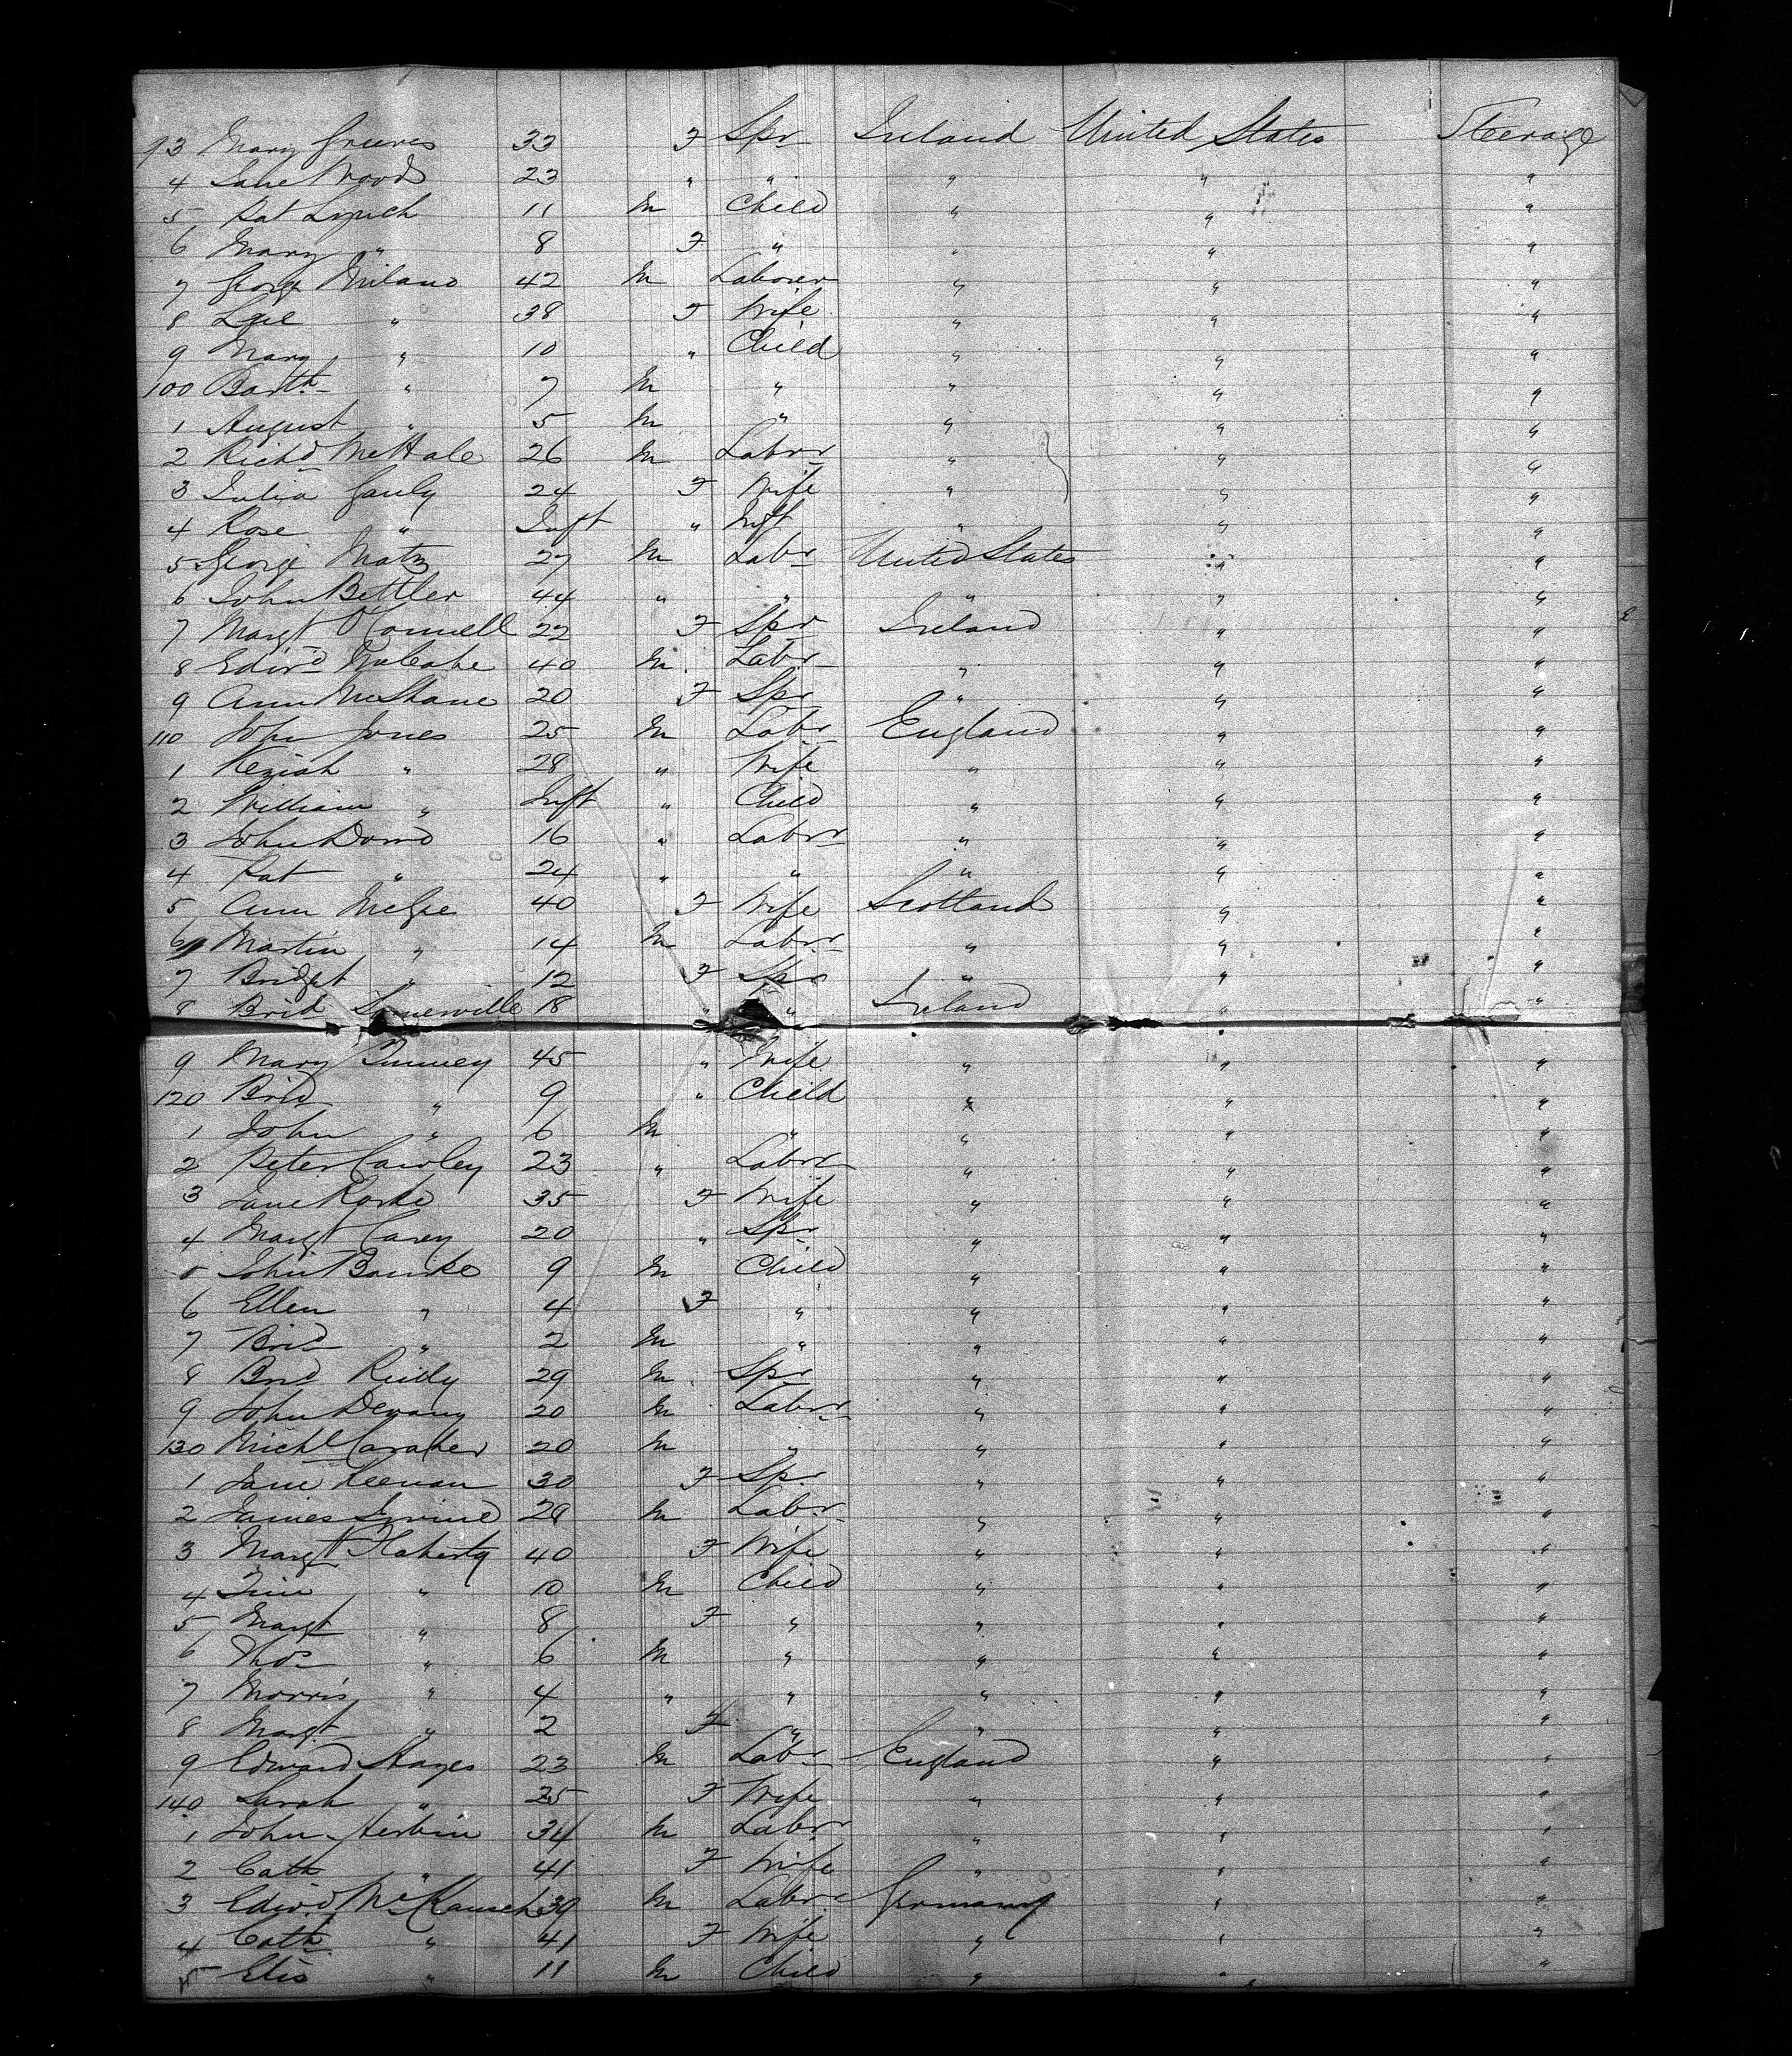 93 Mary Greeves 33 F Spr Ireland United States Steerage
4 Jane Wood 23 " " " " "
5 Pat Lynch 11 M Child " " "
6 Mary " 8 F " " " "
7 George Milano 42 M Laborer " " "
8 " 38 F Wife " " "
9 Mary " 10 " Child " " "
100 Barth " 7 M " " " "
1 August " 5 M " " " "
2 Richd McHale 26 M Labrr " " "
3 Julia Gauly 24 F Wife " " "
4 Rose " Inft " Inft " " "
5 George Matz 27 M Labr United States " "
6 John Bettler 44 " " " " "
7 Margt O'Connell 22 F Spr Ireland " "
8 Edwrd Muleahe 40 M Labr " " "
9 Ann McShane 20 F Spr " " "
110 John Jones 25 M Labr England " "
1 Keziah " 28 " Wife " " "
2 William " Inft " Child " " "
3 John Dowd 16 " Labrr " " "
4 Pat " 24 " " " " "
5 Ann McGee 40 F Wife Scotland " "
6 Martin " 14 M Labrr " " "
7 Bridget " 12 F Spr " " "
8 Brid Somerville 18 " " Ireland " "
9 Mary Tunney 45 " Wife " " "
120 Brid " 9 " Child " " "
1 John " 6 M " " " "
2 Peter Cawley 23 " Labrr " " "
3 Jane Rorke 35 F Wife " " "
4 Margt Carey 20 " Spr " " "
5 John Bourke 9 M Child " " "
6 Ellen " 4 F " " " "
7 Brid " 2 M " " " "
8 Brd Reilly 29 M Spr " " "
9 John Devany 20 M Labrr " " "
130 Michl Caraher 20 M " " " "
1 Jane Keenan 30 F Spr " " "
2 James Irvine 28 M Labr " " "
3 Margt Flaherty 40 F Wife " " "
4 Tim " 10 M Child " " "
5 Margt " 8 F " " " "
6 Thos " 6 M " " " "
7 Morris " 4 " " " " "
8 Margt " 2 F " " " "
9 Edward Hayes 23 M Labr England " "
140 Sarah " 25 F Wife " " "
1 John Herbin 34 M Labrr " " "
2 Cath " 41 F Wife " " "
3 Edwd 39 M Labr Germany " "
4 Cath " 41 F Wife " " "
5 Elis " 11 M Child " " "